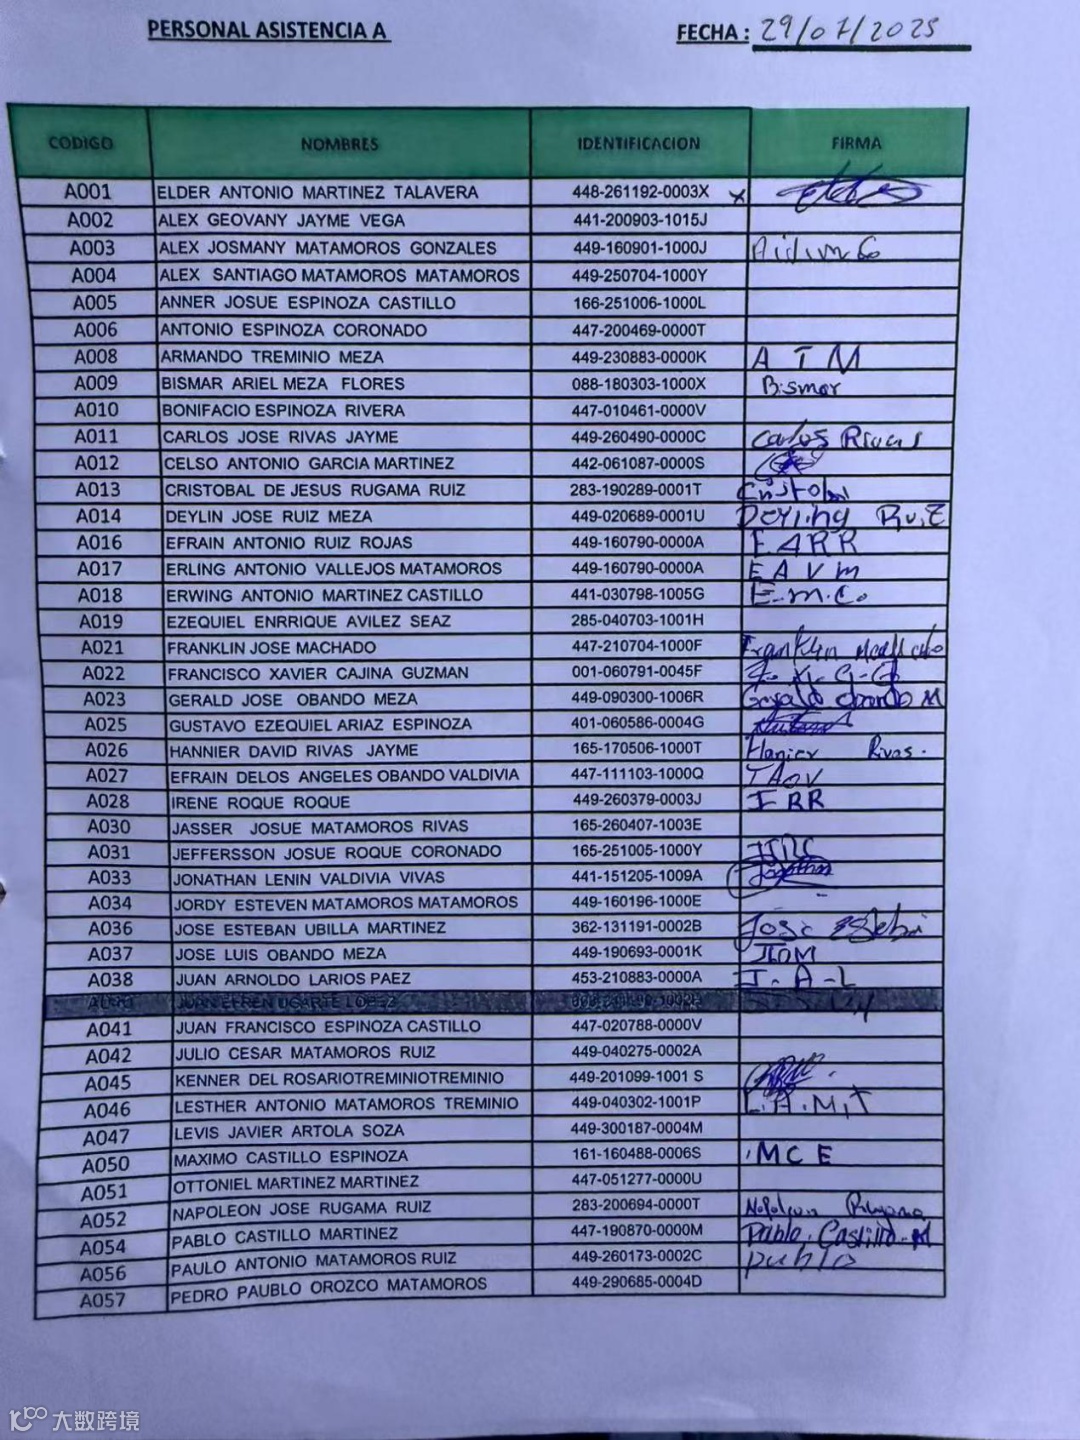 PERSONAL ASISTENCIA A
FECHA : 29/07/2025
CODIGO NOMBRES IDENTIFICACION FIRMA
A001 ELDER ANTONIO MARTINEZ TALAVERA 448-261192-0003X x
A002 ALEX GEOVANY JAYME VEGA 441-200903-1015J
A003 ALEX JOSMANY MATAMOROS GONZALES 449-160901-1000J
A004 ALEX SANTIAGO MATAMOROS MATAMOROS 449-250704-1000Y
A005 ANNER JOSUE ESPINOZA CASTILLO 166-251006-1000L
A006 ANTONIO ESPINOZA CORONADO 447-200469-0000T
A008 ARMANDO TREMINIO MEZA 449-230883-0000K A T M
A009 BISMAR ARIEL MEZA FLORES 088-180303-1000X Bismar
A010 BONIFACIO ESPINOZA RIVERA 447-010461-0000V
A011 CARLOS JOSE RIVAS JAYME 449-260490-0000C Carlos Rivas
A012 CELSO ANTONIO GARCIA MARTINEZ 442-061087-0000S
A013 CRISTOBAL DE JESUS RUGAMA RUIZ 283-190289-0001T
A014 DEYLIN JOSE RUIZ MEZA 449-020689-0001U
A016 EFRAIN ANTONIO RUIZ ROJAS 449-160790-0000A E A R R
A017 ERLING ANTONIO VALLEJOS MATAMOROS 449-160790-0000A E A V m
A018 ERWING ANTONIO MARTINEZ CASTILLO 441-030798-1005G E.m.C.
A019 EZEQUIEL ENRRIQUE AVILEZ SEAZ 285-040703-1001H
A021 FRANKLIN JOSE MACHADO 447-210704-1000F Franklin
A022 FRANCISCO XAVIER CAJINA GUZMAN 001-060791-0045F
A023 GERALD JOSE OBANDO MEZA 449-090300-1006R Gerald Obando M
A025 GUSTAVO EZEQUIEL ARIAZ ESPINOZA 401-060586-0004G
A026 HANNIER DAVID RIVAS JAYME 165-170506-1000T Hanier Rivas.
A027 EFRAIN DELOS ANGELES OBANDO VALDIVIA 447-111103-1000Q
A028 IRENE ROQUE ROQUE 449-260379-0003J I RR
A030 JASSER JOSUE MATAMOROS RIVAS 165-260407-1003E
A031 JEFFERSSON JOSUE ROQUE CORONADO 165-251005-1000Y
A033 JONATHAN LENIN VALDIVIA VIVAS 441-151205-1009A
A034 JORDY ESTEVEN MATAMOROS MATAMOROS 449-160196-1000E
A036 JOSE ESTEBAN UBILLA MARTINEZ 362-131191-0002B
A037 JOSE LUIS OBANDO MEZA 449-190693-0001K
A038 JUAN ARNOLDO LARIOS PAEZ 453-210883-0000A J-A-L
JUAN EFREN UGARTE LOPEZ
A041 JUAN FRANCISCO ESPINOZA CASTILLO 447-020788-0000V
A042 JULIO CESAR MATAMOROS RUIZ 449-040275-0002A
A045 KENNER DEL ROSARIOTREMINIOTREMINIO 449-201099-1001 S
A046 LESTHER ANTONIO MATAMOROS TREMINIO 449-040302-1001P L.A.M.T
A047 LEVIS JAVIER ARTOLA SOZA 449-300187-0004M
A050 MAXIMO CASTILLO ESPINOZA 161-160488-0006S MCE
A051 OTTONIEL MARTINEZ MARTINEZ 447-051277-0000U
A052 NAPOLEON JOSE RUGAMA RUIZ 283-200694-0000T
A054 PABLO CASTILLO MARTINEZ 447-190870-0000M Pablo Castillo M
A056 PAULO ANTONIO MATAMOROS RUIZ 449-260173-0002C
A057 PEDRO PAUBLO OROZCO MATAMOROS 449-290685-0004D
大数跨境